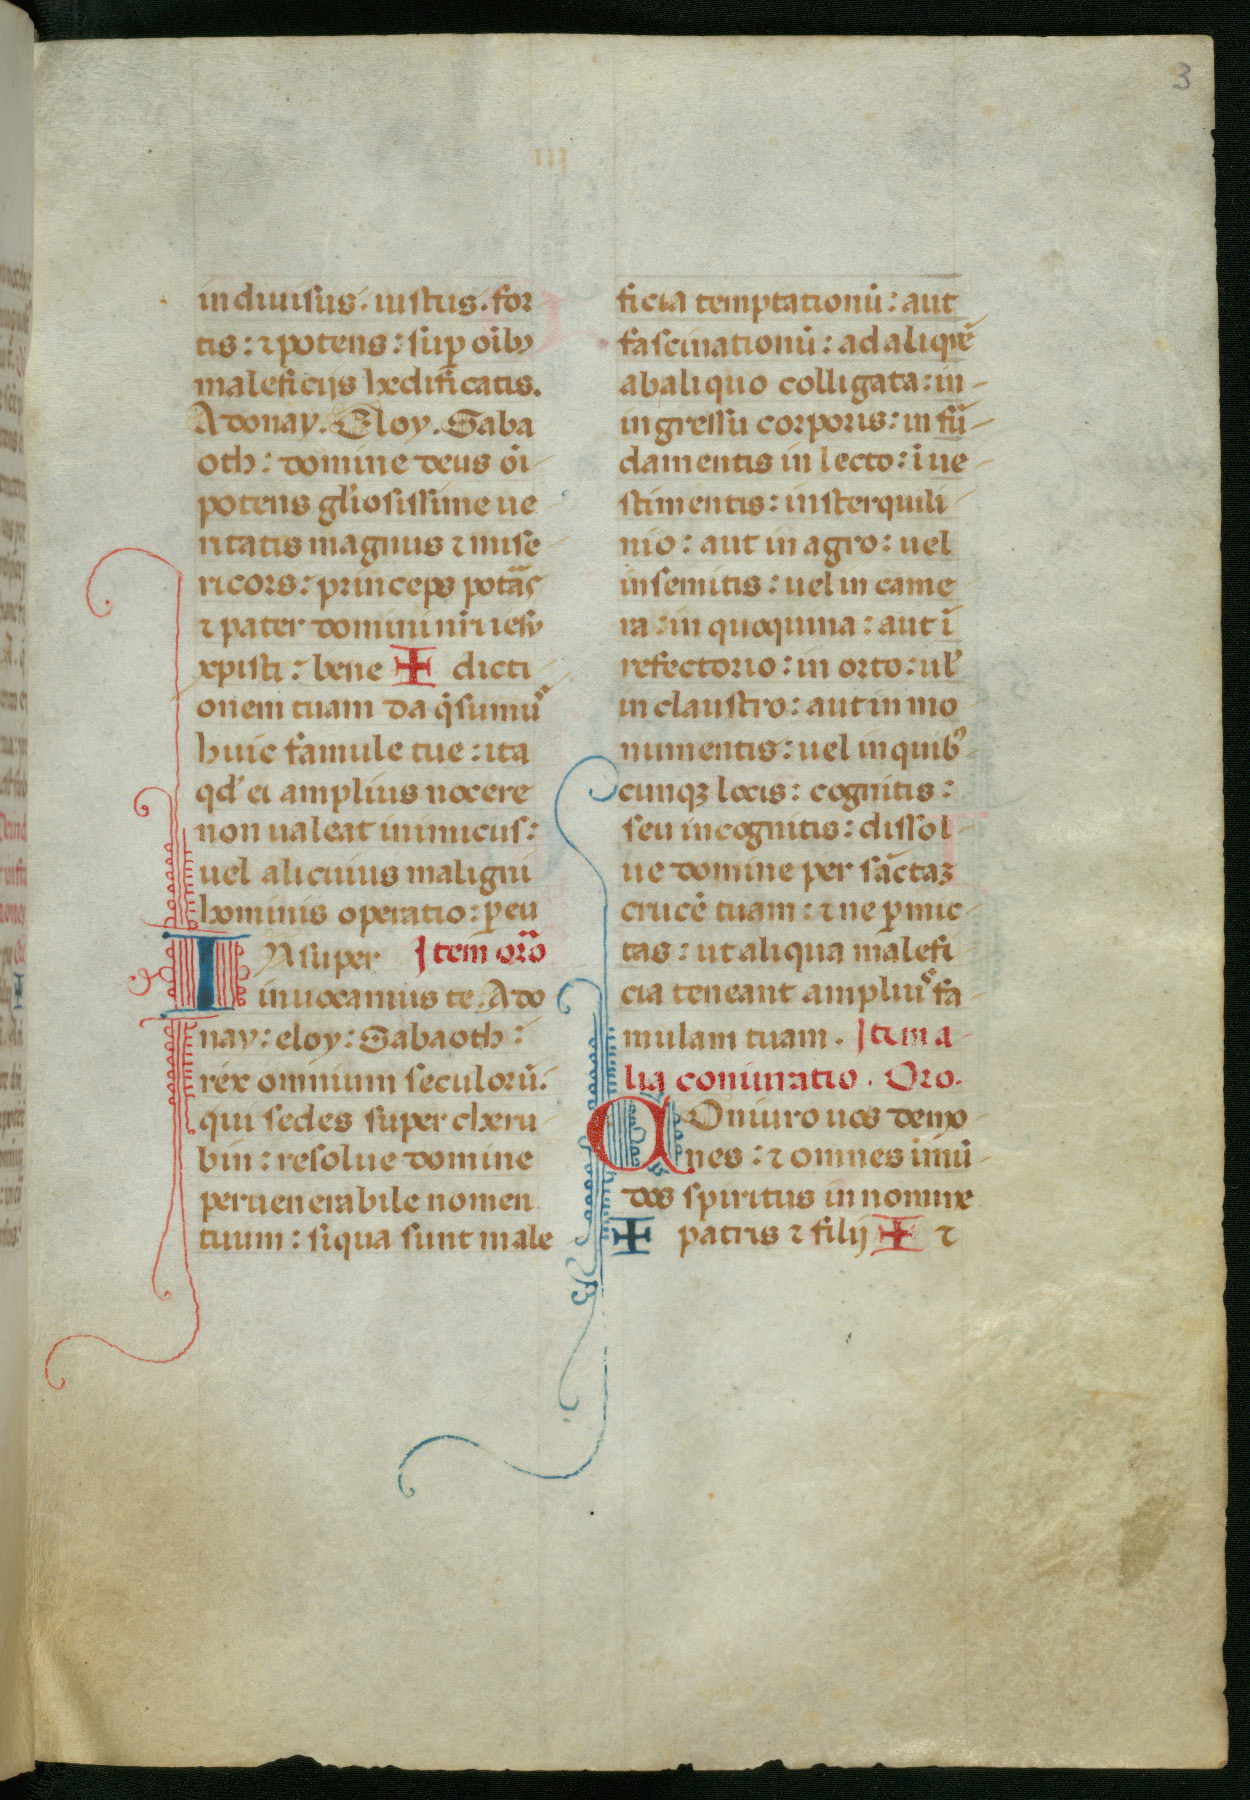 3
indiuisus. iustus. for
tis: ⁊ potens: sup oīb9
maleficijs hedificatis.
Adonay. Eloy. Saba
oth: domine deus oī
potens gl'iosissime ue
ritatis magnus ⁊ mise
ricors: princeps potāς
⁊ pater domini nr̄i ieſu
xpisti: bene ✠ dicti
onem tuam da q̄sumuˢ
huic famule tue: ita
qd' ei amplius nocere
non ualeat inimicus:
uel alicuius maligni
hominis operatio: ꝑ eu
Item or̄o
INsuper
inuocamus te. Ado
nay: eloy: Sabaoth:
rex omnium seculorū.
qui sedes super cheru
bin: resolue domine
per uenerabile nomen
tuum: si qua sunt male
ficia temptationū: aut
fascinationū: ad aliquē
ab aliquo colligata: in
ingressu corporis: in fū
damentis in lecto: ī ue
stimentis: in sterquili
nio: aut in agro: uel
in semitis: uel in came
ra: in quoquina: aut ī
refectorio: in orto: ul'
in claustro: aut in mo
numentis: uel in quib9
cunqꝫ locis: cognitis:
seu incognitis: dissol
ue domine per sāctaꝫ
crucē tuam: ⁊ ne ꝑmic
tas: ut aliqua malefi
cia teneant ampliuˢ fa
mulam tuam. Item a
lia coniuratio. Oro.
COniuro uos demo
nes: ⁊ omnes imū
dos spiritus in nomine
✠ patris ⁊ filij ✠ ⁊